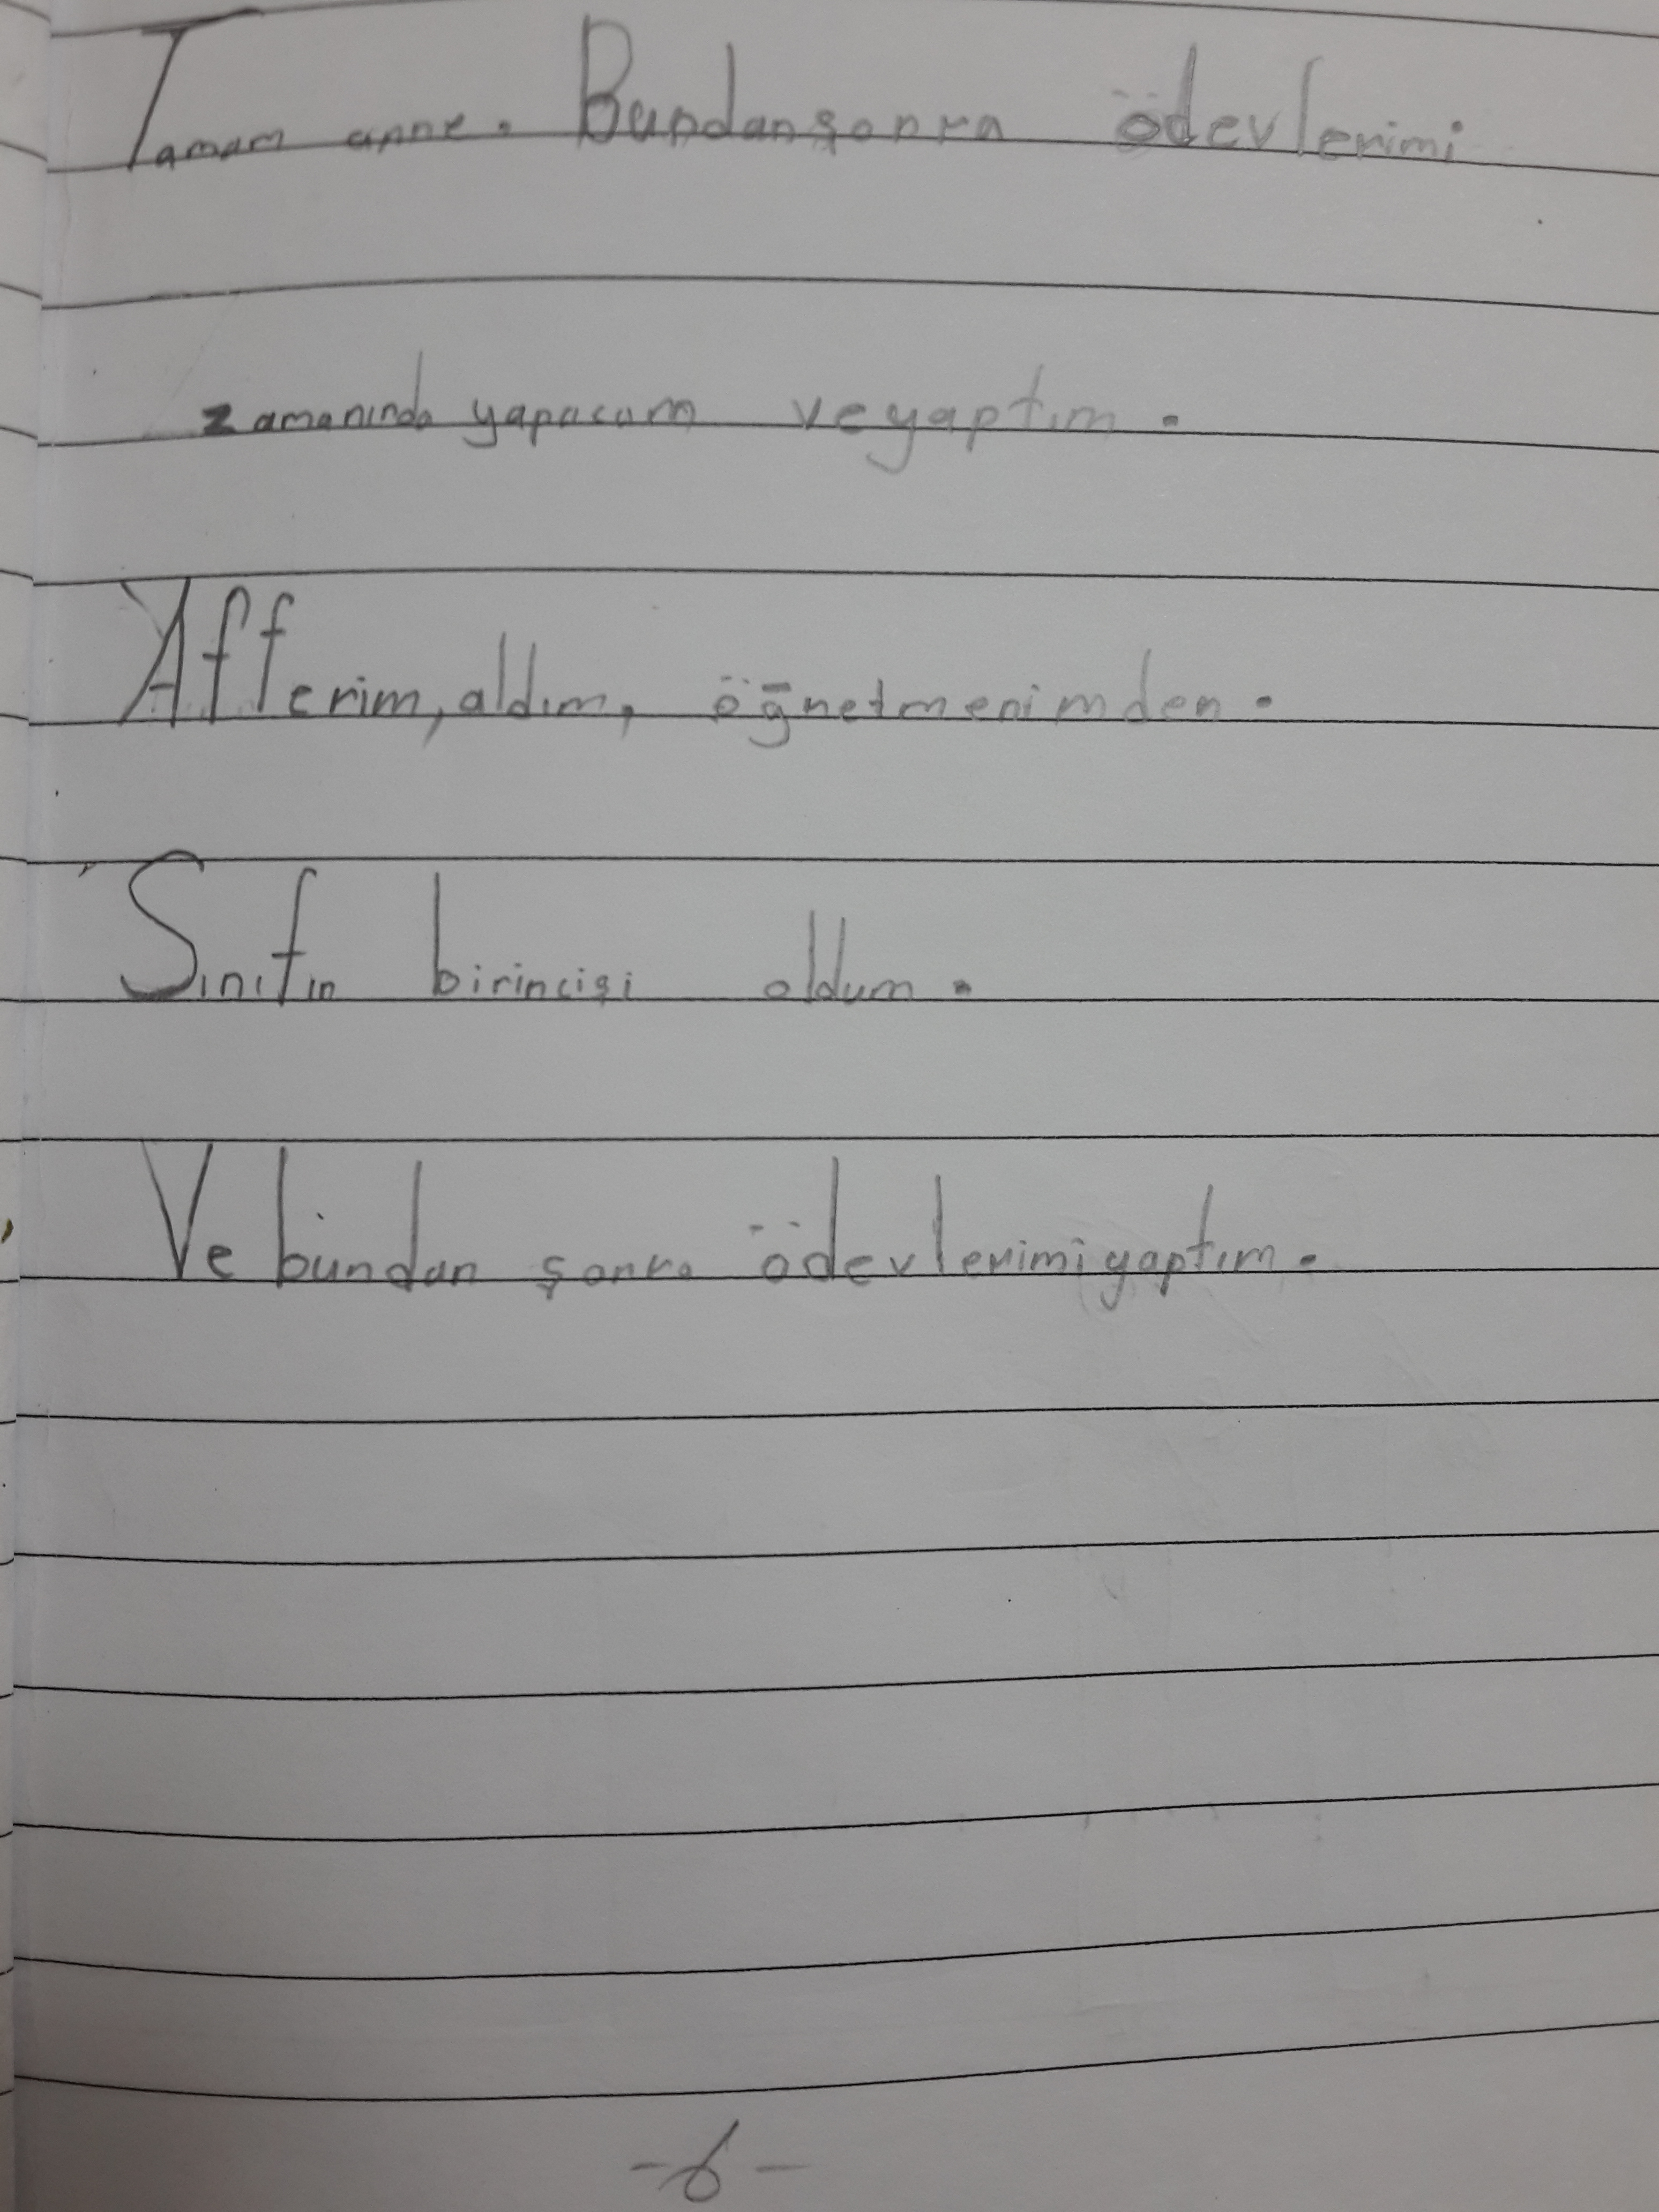 Tamam anne. Bundanşonra ödevlerimi
zamanında yapacam veyaptım.
Afferim, aldım, öğretmenimden.
Sınıfın birincisi oldum.
Ve bundan şonra ödevlerimi yaptım.
-6-